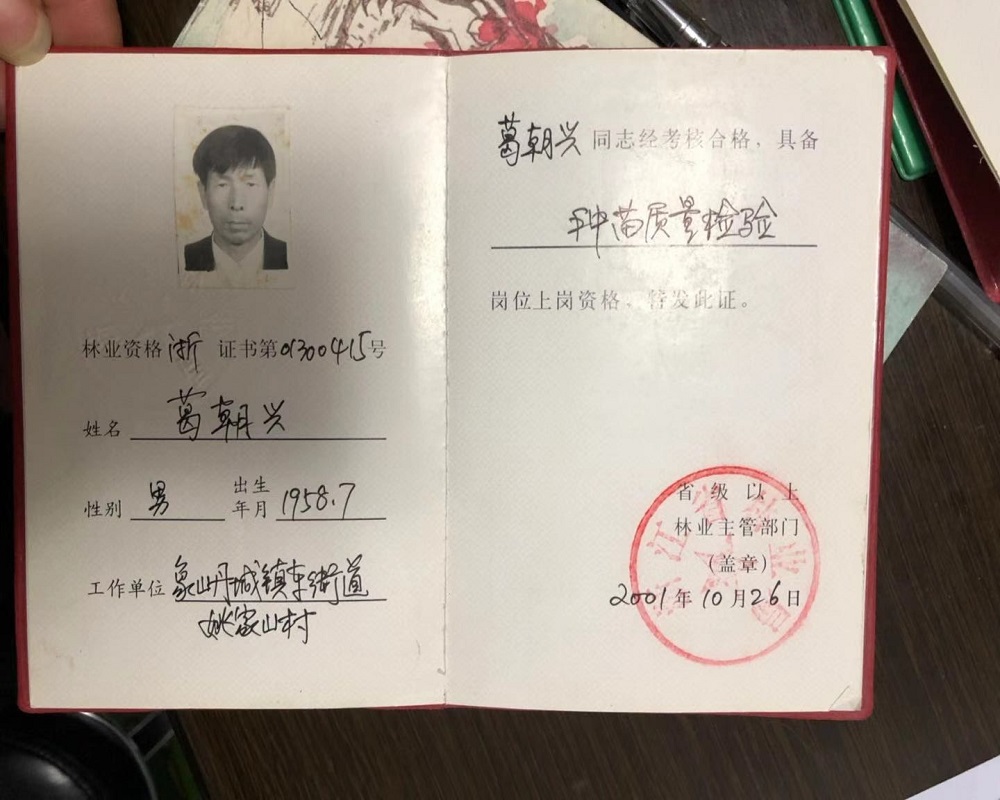 林业资格浙 证书第01300415号
姓名 葛朝兴
性别 男 出生年月 1958.7
工作单位 象山丹城镇东街道
姚家山村
葛朝兴 同志经考核合格，具备
种苗质量检验
岗位上岗资格，特发此证。
省级以上
林业主管部门
（盖章）
2001年10月26日
浙江省林业局